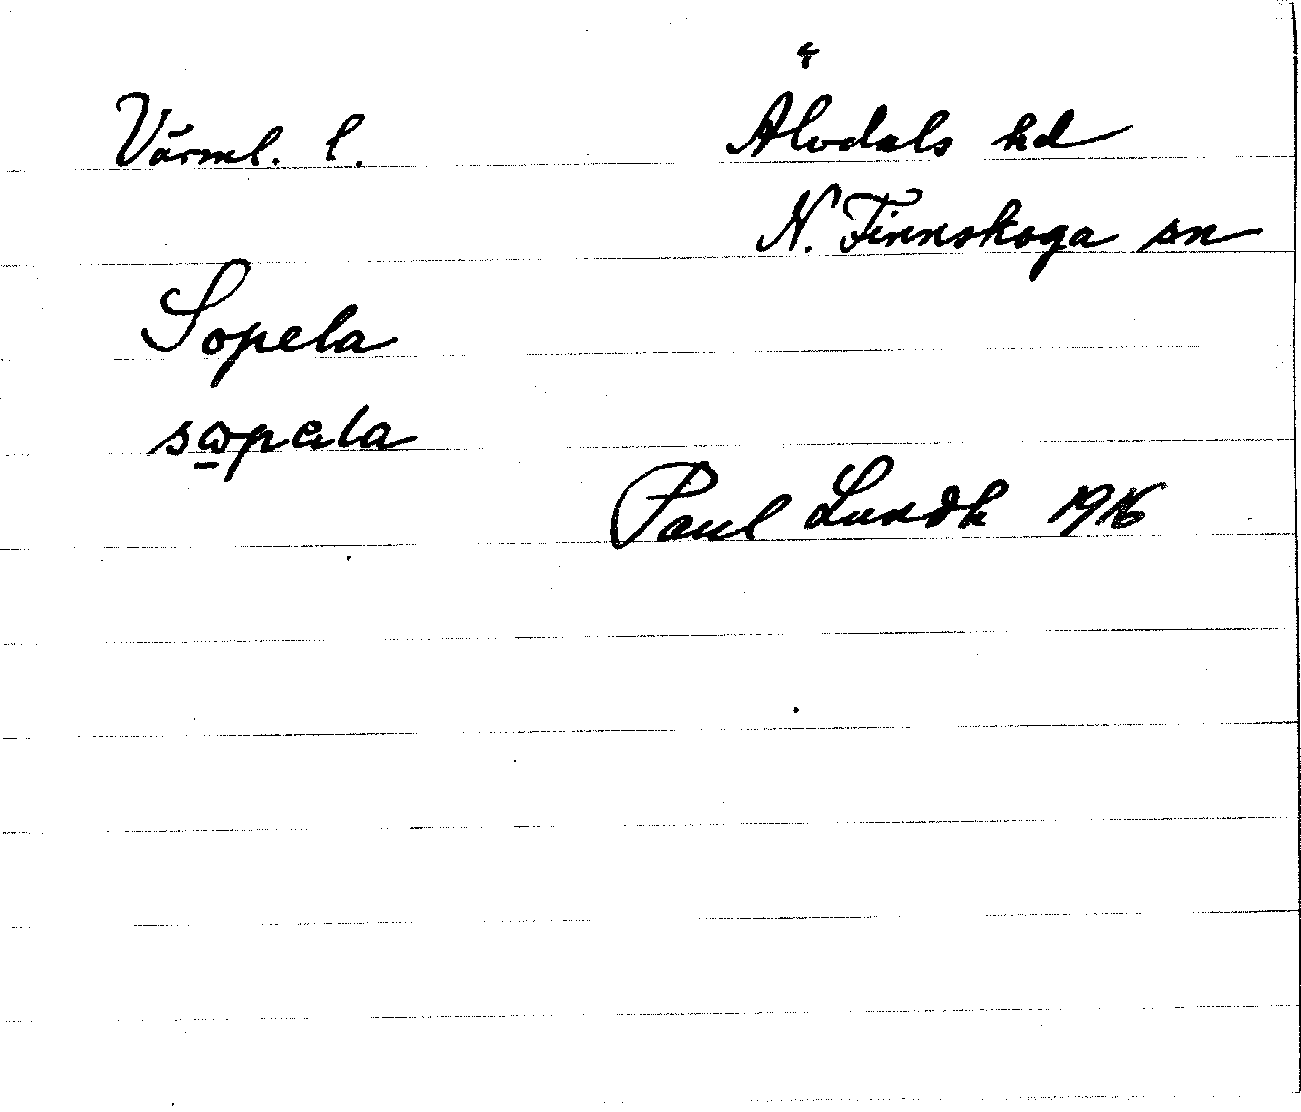 Värml. l. Älvdals hd
N. Finnskoga sn
Sopela
Paul Lundh 1916